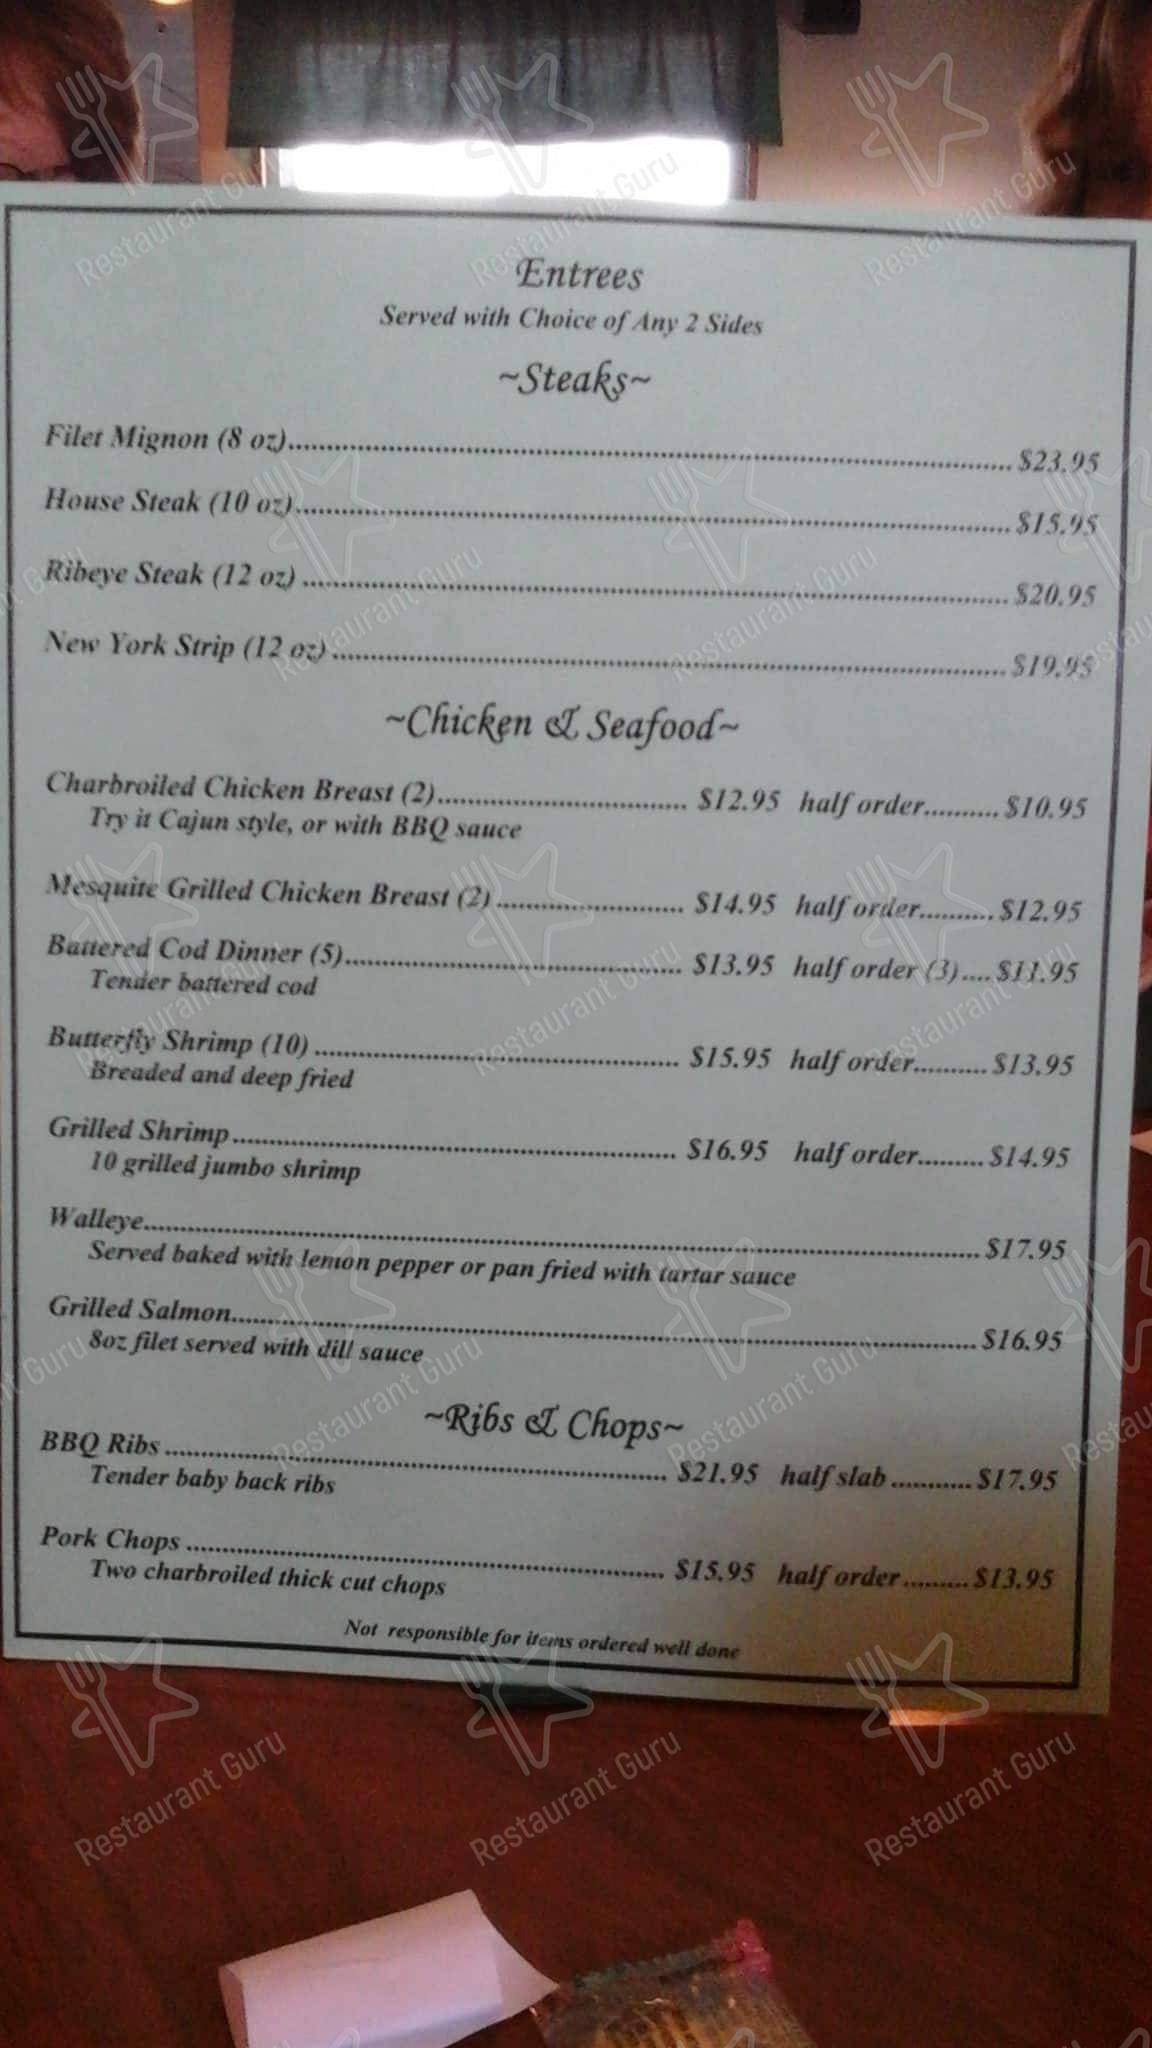 Entrees
Served with Choice of Any 2 Sides
~Steaks~
Filet Mignon (8 oz)..........$23.95
House Steak (10 oz)..........$15.95
Ribeye Steak (12 oz)..........$20.95
New York Strip (12 oz)..........$19.95
~Chicken & Seafood~
Charbroiled Chicken Breast (2)..........$12.95 half order..........$10.95
Try it Cajun style, or with BBQ sauce
Mesquite Grilled Chicken Breast (2)..........$14.95 half order..........$12.95
Battered Cod Dinner (5)..........$13.95 half order (3)....$11.95
Tender battered cod
Butterfly Shrimp (10)..........$15.95 half order..........$13.95
Breaded and deep fried
Grilled Shrimp..........$16.95 half order.........$14.95
10 grilled jumbo shrimp
Walleye..........$17.95
Served baked with lemon pepper or pan fried with tartar sauce
Grilled Salmon..........$16.95
8oz filet served with dill sauce
~Ribs & Chops~
BBQ Ribs..........$21.95 half slab...........$17.95
Tender baby back ribs
Pork Chops..........$15.95 half order.........$13.95
Two charbroiled thick cut chops
Not responsible for items ordered well done
Restaurant Guru